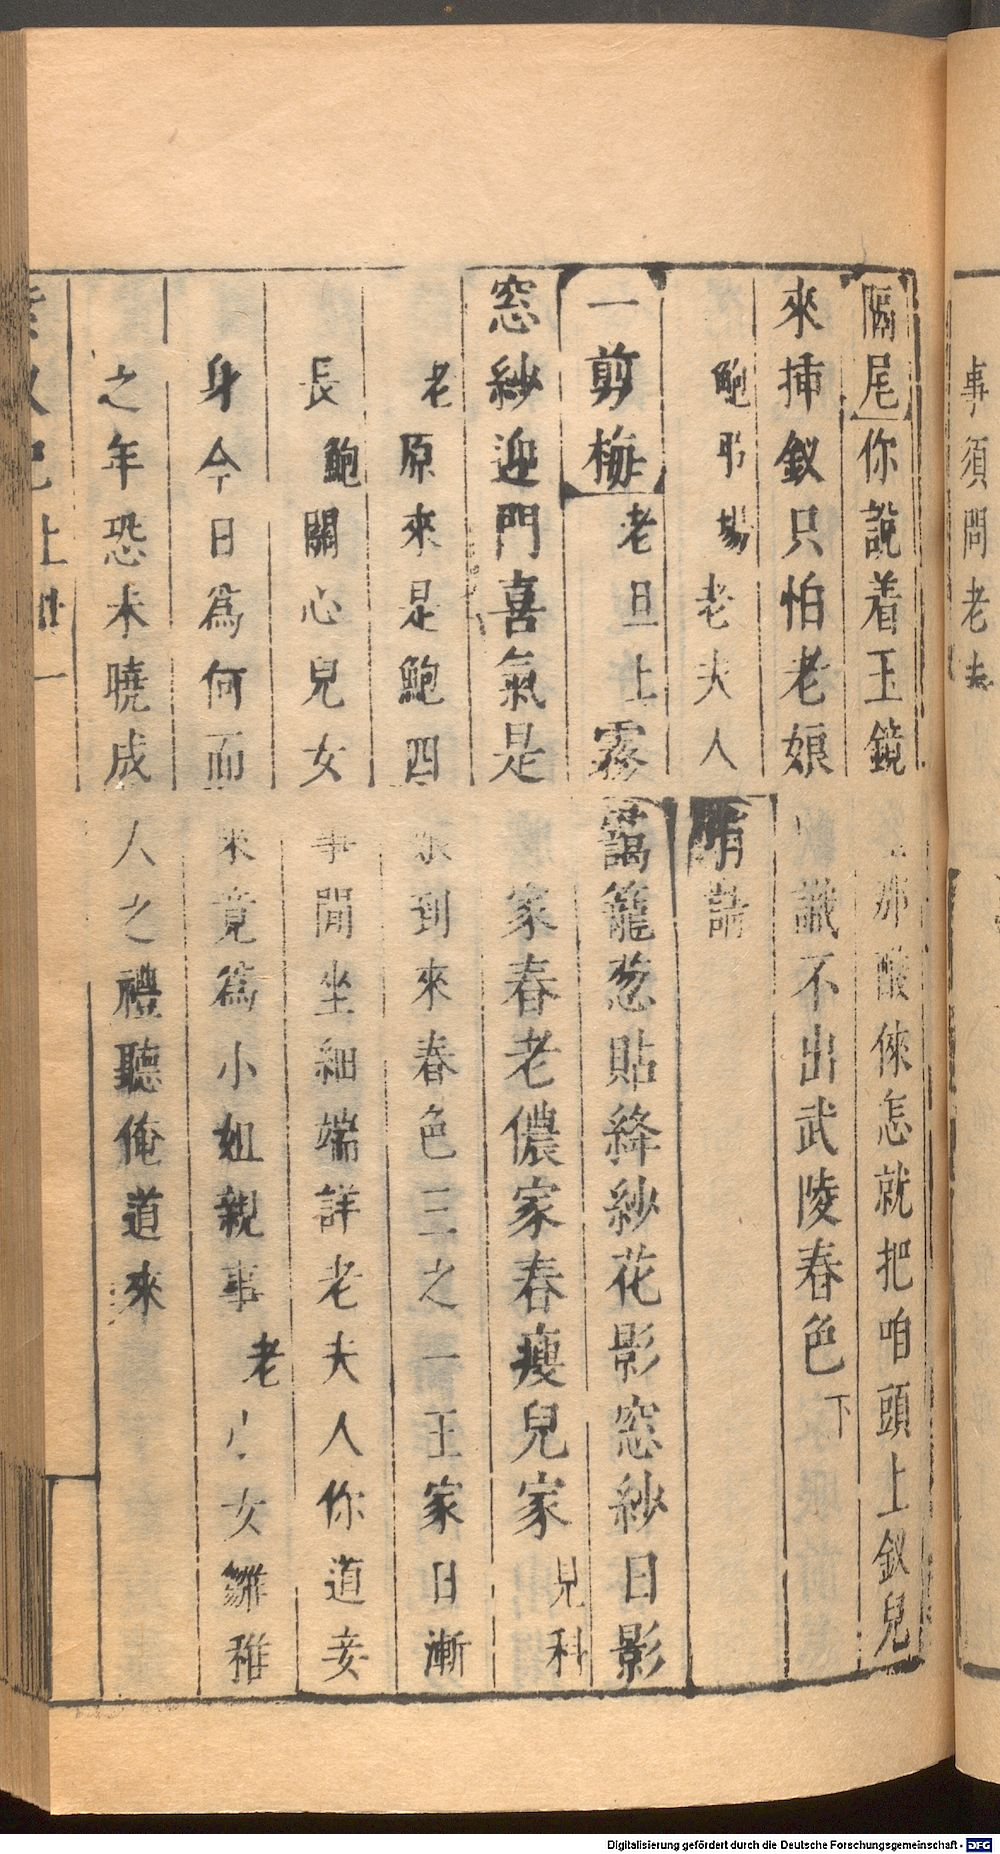 事須問老夫
隔尾你說着玉鏡那酸倈怎就把咱頭上釵兒
來揷釵只怕老娘識不出武陵春色下
鮑弔場老夫人請
一剪梅老旦上霧靄籠葱貼絳紗花影窓紗日影
窓紗迎門喜氣是家春老儂家春瘦兒家見科
老原來是鮑四娘到來春色三之一王家日漸
長鮑關心兒女事閒坐細端詳老夫人你道妾
身今日爲何而來竟爲小姐親事老小女雛稚
之年恐未曉成人之禮聽俺道來
上 一
Digitalisierung gefördert durch die Deutsche Forschungsgemeinschaft - DFG